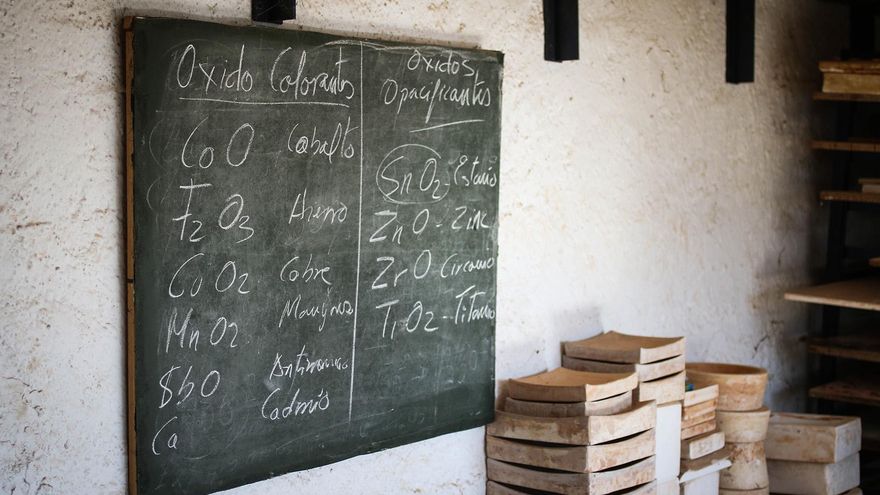 Oxido Colorantes
CoO Cabalto
F2O3 Hierro
CuO2 Cobre
MnO2 Mangnes
SbO Antimonio
Ca Cadmio
Oxidos
Opacificantes
SnO2-Estanio
ZnO-Zinc
ZrO Circonio
TiO2-Titanio